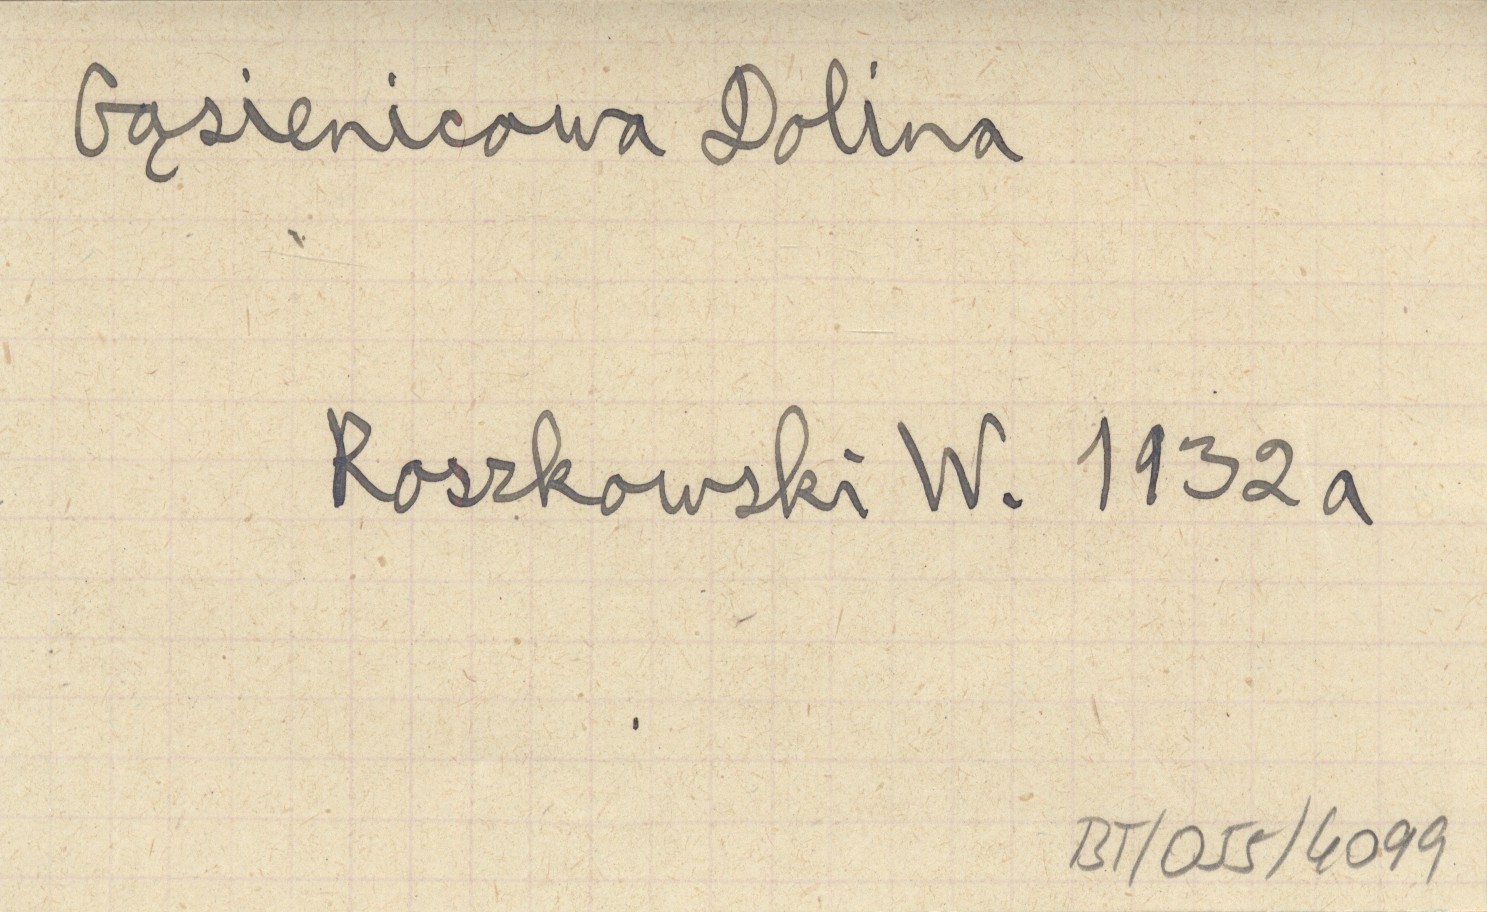 Gąsienicowa Dolina
Roszkowski W. 1932 a
BT/055/4099